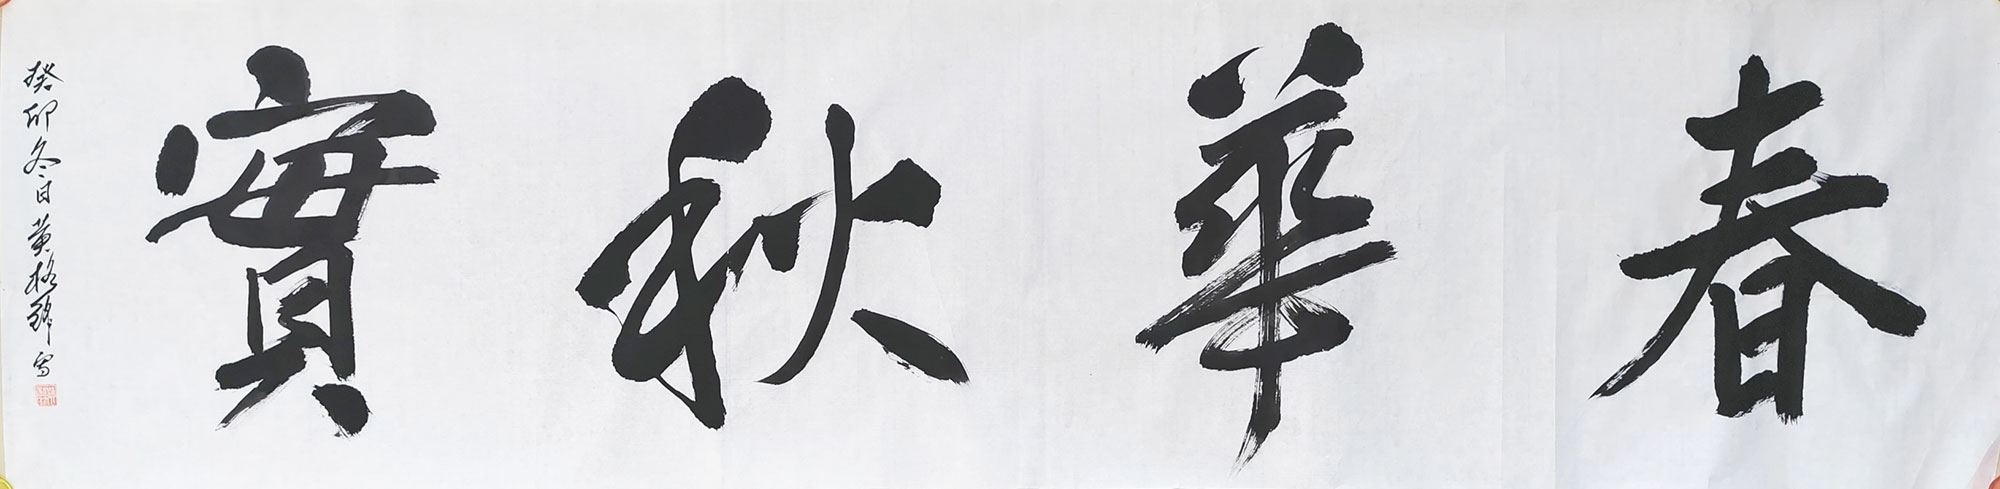 春華秋實
癸卯冬日黄格錦寫